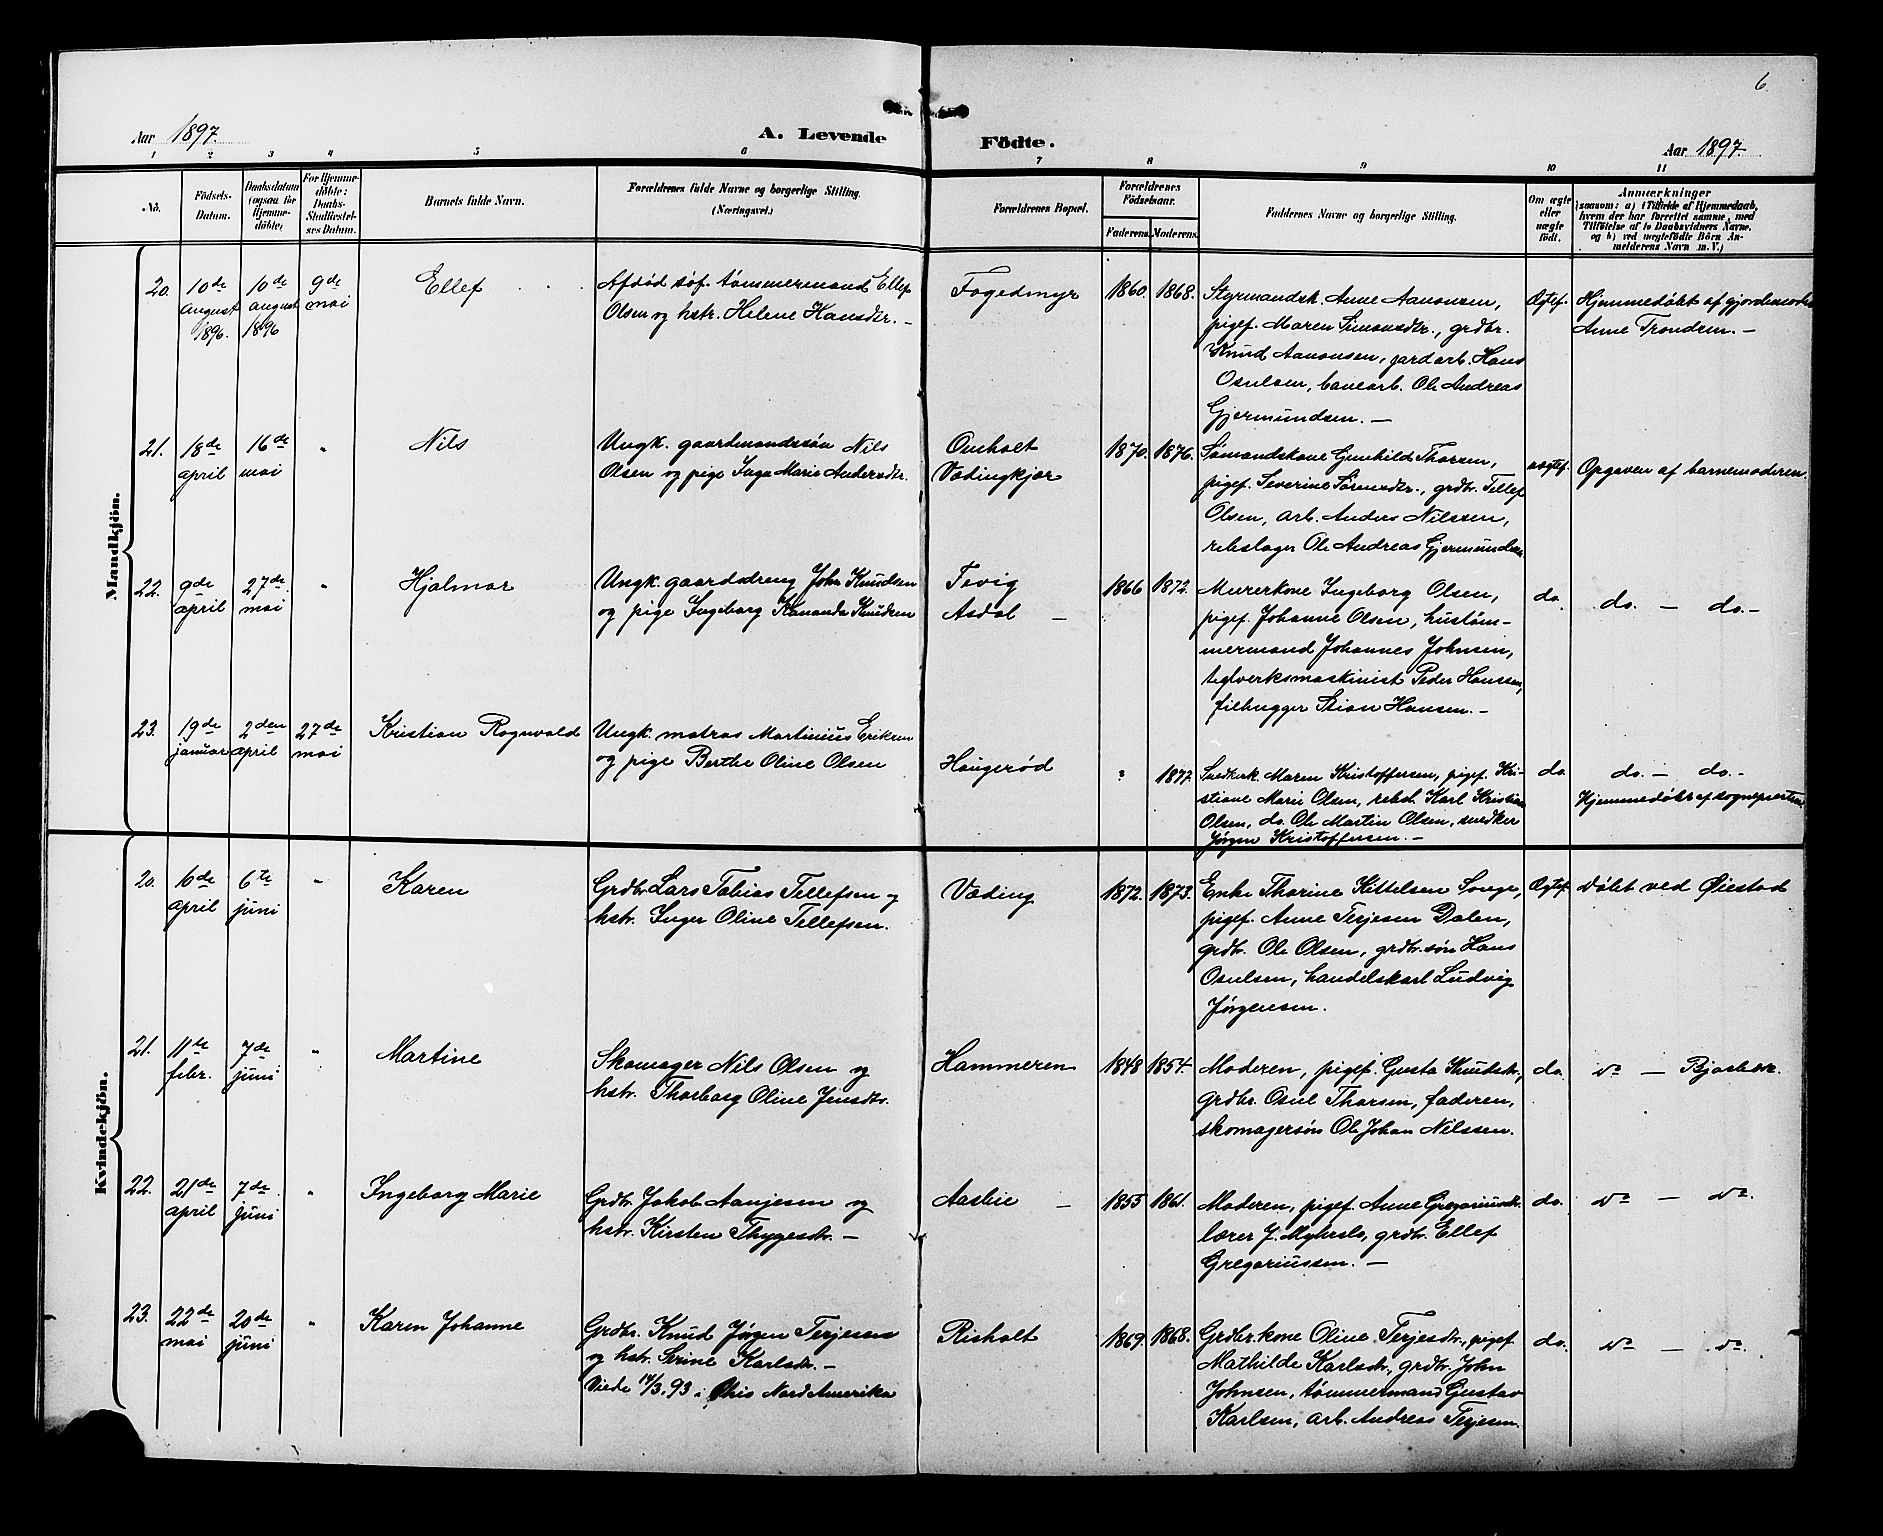 6
Aar 1897.
A. Levende Födte.
Aar 1897.
1 2 3 4 5 6 7 8 9 10 11
No.
Födsels-
Datum.
Daabsdatum
(ogsaa for
Hjemme-
döbte)
For Hjemme-
döbte:
Daabs-
Stadfæstel-
ses Datum.
Barnets fulde Navn.
Forældrenes fulde Navne og borgerlige Stilling.
(Næringsvei.)
Forældrenes Bopæl.
Forældrenes
Födselsaar.
Faderens. Moderens.
Faddernes Navne og borgerlige Stilling.
Om ægte
eller
uægte
födt.
Anmærkninger
(saasom: a) i Tilfælde af Hjemmedaab,
hvem der har forrettet samme, med
Tilföielse af to Daabsvidners Navne.
og b) ved uægtefödte Börn An-
melderens Navn m. V.)
Mandkjön.
20.
10de
august
1896.
10de
august
1896
9de
mai
Ellef
Afdød søf. tømmermand Ellef
Olsen og hstr. Helene Hansdtr. –
Fogedmyr
1860. 1868.
Styrmandsk. Anne Aanonsen,
pigef. Maren Simonsdtr., grdbr.
Knud Aanonsen, jardarb. Hans
Osulsen, banearb. Ole Andreas
Gjermundsen. –
Ægtef.
Hjemmedøbt af gjordemoder
Anne Trondsen. –
21.
18de
april
16de
mai
"
Nils
Ungk. gaardmandssøn Nils
Olsen og pige Inga Marie Andersdtr.
Omholt
Vædingkjær
1870. 1876.
Sømandskone Gunhild Thorsen,
pigef. Severine Sørensdtr., grdbr. Tellef
Olsen, arb. Anders Nilssen,
rebslager Ole Andreas Gjermundsen
uægtef.
Opgaven af barnemoderen.
22.
9de
april
27de
mai
"
Hjalmar
Ungk. gaardsdreng John Knudsen
og pige Ingeborg Kananda Knudsen
Tevig
Asdal –
1866 1872.
Murerkone Ingeborg Olsen,
pigef. Johanne Olsen, hustøm-
mermand Johannes Johnsen,
teglverksmaskinist Peder Hanssen,
filhugger Stian Hansen. –
do.
do. – do. –
23.
19de
januar
2den
april
27de
mai
Kristian Ragnvald
Ungk. matros Martinius Eriksen
og pige Berthe Oline Olsen
Haugerød
? 1877.
Snedkerk. Maren Kristoffersen, pigef. Kri-
stiane Marie Olsen, rebsl. Karl Kristian
Olsen, do. Ole Martin Olsen, snedker
Jørgen Kristoffersen. –
do.
do. – do. –
Hjemmedøbt af sognepresten
Kvindekjön.
20.
10de
april
6te
juni
"
Karen
Grdbr. Lars Tobias Tellefsen og
hstr. Inger Oline Tellefsen.
Væding
1872. 1873.
Enke Thorine Kittelsen Songe,
pigef. Anne Terjesen Dalen,
grdbr. Ole Olsen, grdbr.søn Hans
Osulsen, handelskarl Ludvig
Jørgensen.
Ægtef.
Døbt ved Øiestad
21.
11te
febr.
7de
juni
"
Martine
Skomager Nils Olsen og
hstr. Thorborg Oline Jensdtr.
Hammeren
1848 1854.
Moderen, pigef. Gusta Knudsdtr.,
grdbr. Osul Thorsen, faderen,
skomagersøn Ole Johan Nilssen.
do.
do – Bjorbæk.
22.
21de
april
7de
juni
"
Ingeborg Marie
Grdbr. Jakob Aanjesen og
hstr. Kirsten Thygesdtr. –
Aasbie –
1855 1861.
Moderen, pigef. Anne Gregoriusdtr.
lærer J. Myhrslo, grdbr. Ellef
Gregoriussen. –
do.
do – do.
23.
22de
mai
20de
juni
"
Karen Johanne
Grdbr. Knud Jørgen Terjesen
og hstr. Serine Karlsdtr. –
Viede 14/3.93 i Ohio Nord Amerika
Risholt
1869. 1868.
Grdbr.kone Oline Terjesdtr., pigef.
Mathilde Karlsdtr., grdbr. John
Johnsen, tømmermand Gustav
Karlsen, arb. Andreas Terjesen.
do.
do – do.